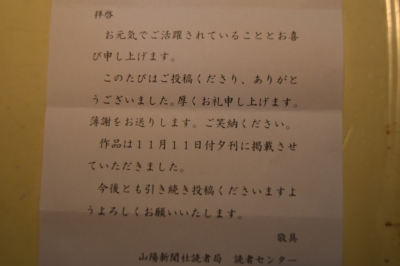 拝啓
お元気でご活躍されていることとお喜
び申し上げます。
このたびはご投稿くださり、ありがと
うございました。厚くお礼申し上げます。
薄謝をお送りします。ご笑納ください。
作品は11月11日付夕刊に掲載させ
ていただきました。
今後とも引き続き投稿くださいますよ
うよろしくお願いいたします。
敬具
山陽新聞社読者局 読者センター